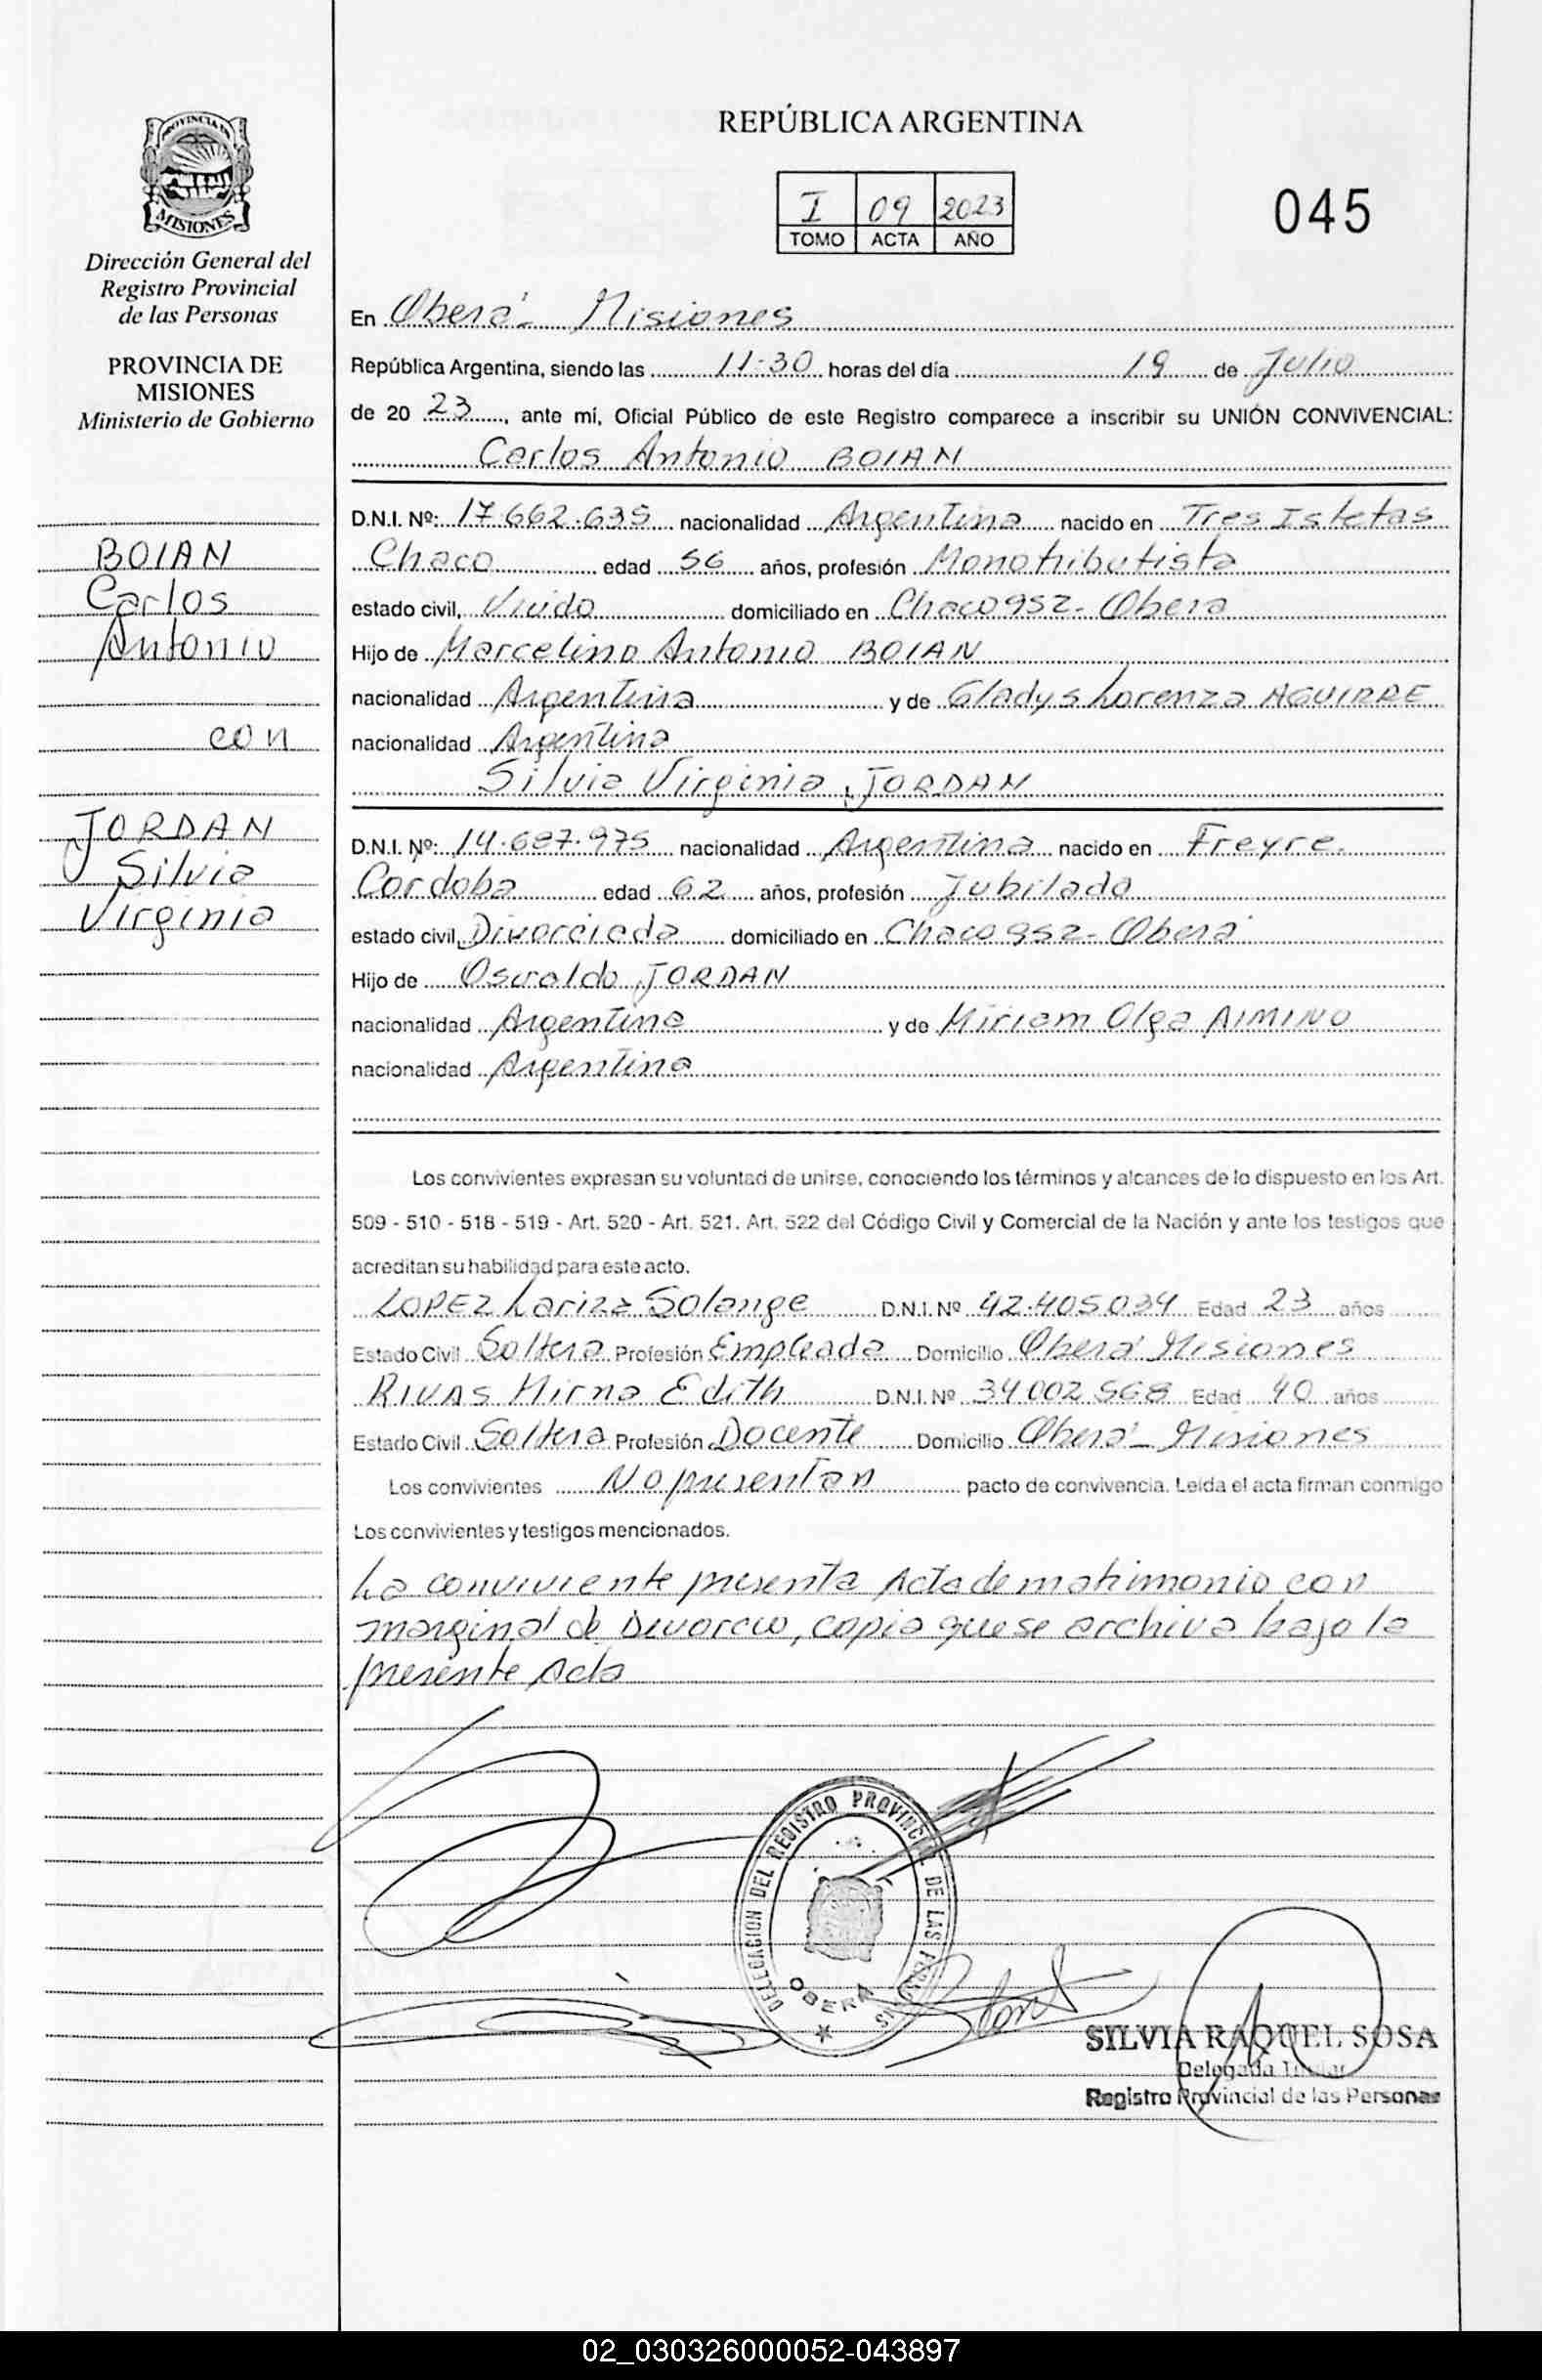 REPÚBLICA ARGENTINA
I 09 2023
TOMO ACTA AÑO
045
PROVINCIA DE
MISIONES
Dirección General del
Registro Provincial
de las Personas
PROVINCIA DE
MISIONES
Ministerio de Gobierno
BOIAN
Carlos
Antonio
con
JORDAN
Silvia
Virginia
En Oberá - Misiones
República Argentina, siendo las 11:30 horas del día 19 de Julio
de 20 23, ante mí, Oficial Público de este Registro comparece a inscribir su UNIÓN CONVIVENCIAL:
Carlos Antonio BOIAN
D.N.I. Nº: 17.662.635 nacionalidad Argentina nacido en Tres Isletas
Chaco edad 56 años, profesión Monotributista
estado civil, Viudo domiciliado en Chaco 952 - Oberá
Hijo de Marcelino Antonio BOIAN
nacionalidad Argentina y de Gladys Lorenza AGUIRRE
nacionalidad Argentina
Silvia Virginia JORDAN
D.N.I. Nº: 14.687.975 nacionalidad Argentina nacido en Freyre.
Cordoba edad 62 años, profesión Jubilada
estado civil, Divorciada domiciliado en Chaco 952 - Oberá
Hijo de Osvaldo JORDAN
nacionalidad Argentina y de Miriam Olga AIMINO
nacionalidad Argentina
Los convivientes expresan su voluntad de unirse, conociendo los términos y alcances de lo dispuesto en los Art.
509 - 510 - 518 - 519 - Art. 520 - Art. 521. Art. 522 del Código Civil y Comercial de la Nación y ante los testigos que
acreditan su habilidad para este acto.
LOPEZ Lariza Solange D.N.I. Nº 42.405.034 Edad 23 años
Estado Civil Soltera Profesión Empleada Domicilio Oberá Misiones
RIVAS Mirna Edith D.N.I. Nº 34.002.568 Edad 40 años
Estado Civil Soltera Profesión Docente Domicilio Oberá - Misiones
Los convivientes No presentan pacto de convivencia. Leída el acta firman conmigo
Los convivientes y testigos mencionados.
La conviviente presenta Acta de matrimonio con
marginal de Divorcio, copia que se archiva bajo la
presente Acta
DELEGACION DEL REGISTRO PROVINCIAL DE LAS PERSONAS
OBERA
SILVIA RAQUEL SOSA
Delegada Titular
Registro Provincial de las Personas
02_030326000052-043897